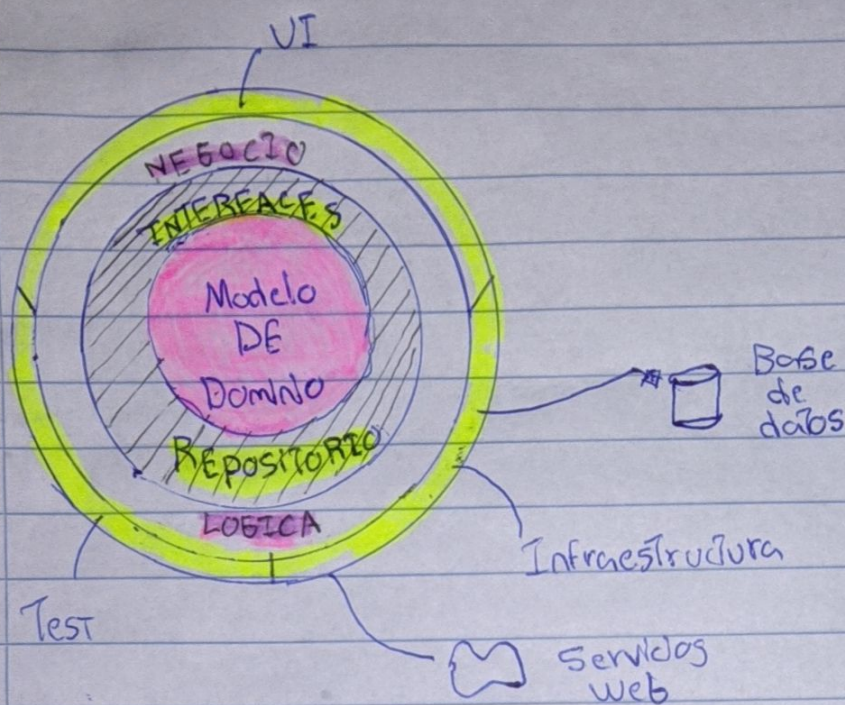 UI
NEGOCIO
INTERFACES
Modelo
DE
DOMINIO
REPOSITORIO
LOGICA
Base
de
datos
Infraestructura
Test
Servicios
web